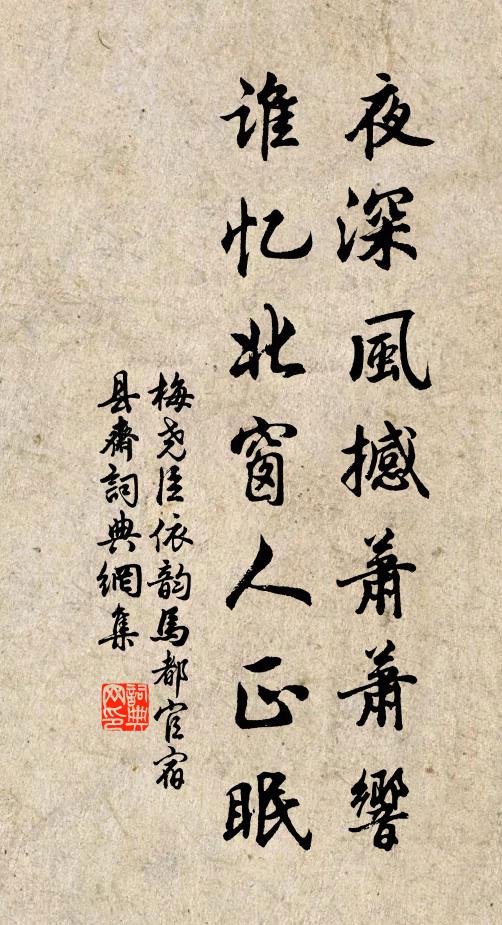 夜深風撼萧萧響
谁忆北窗人正眠
梅尧臣依韵馬都官宿
县齋詞典網集
詞典网印